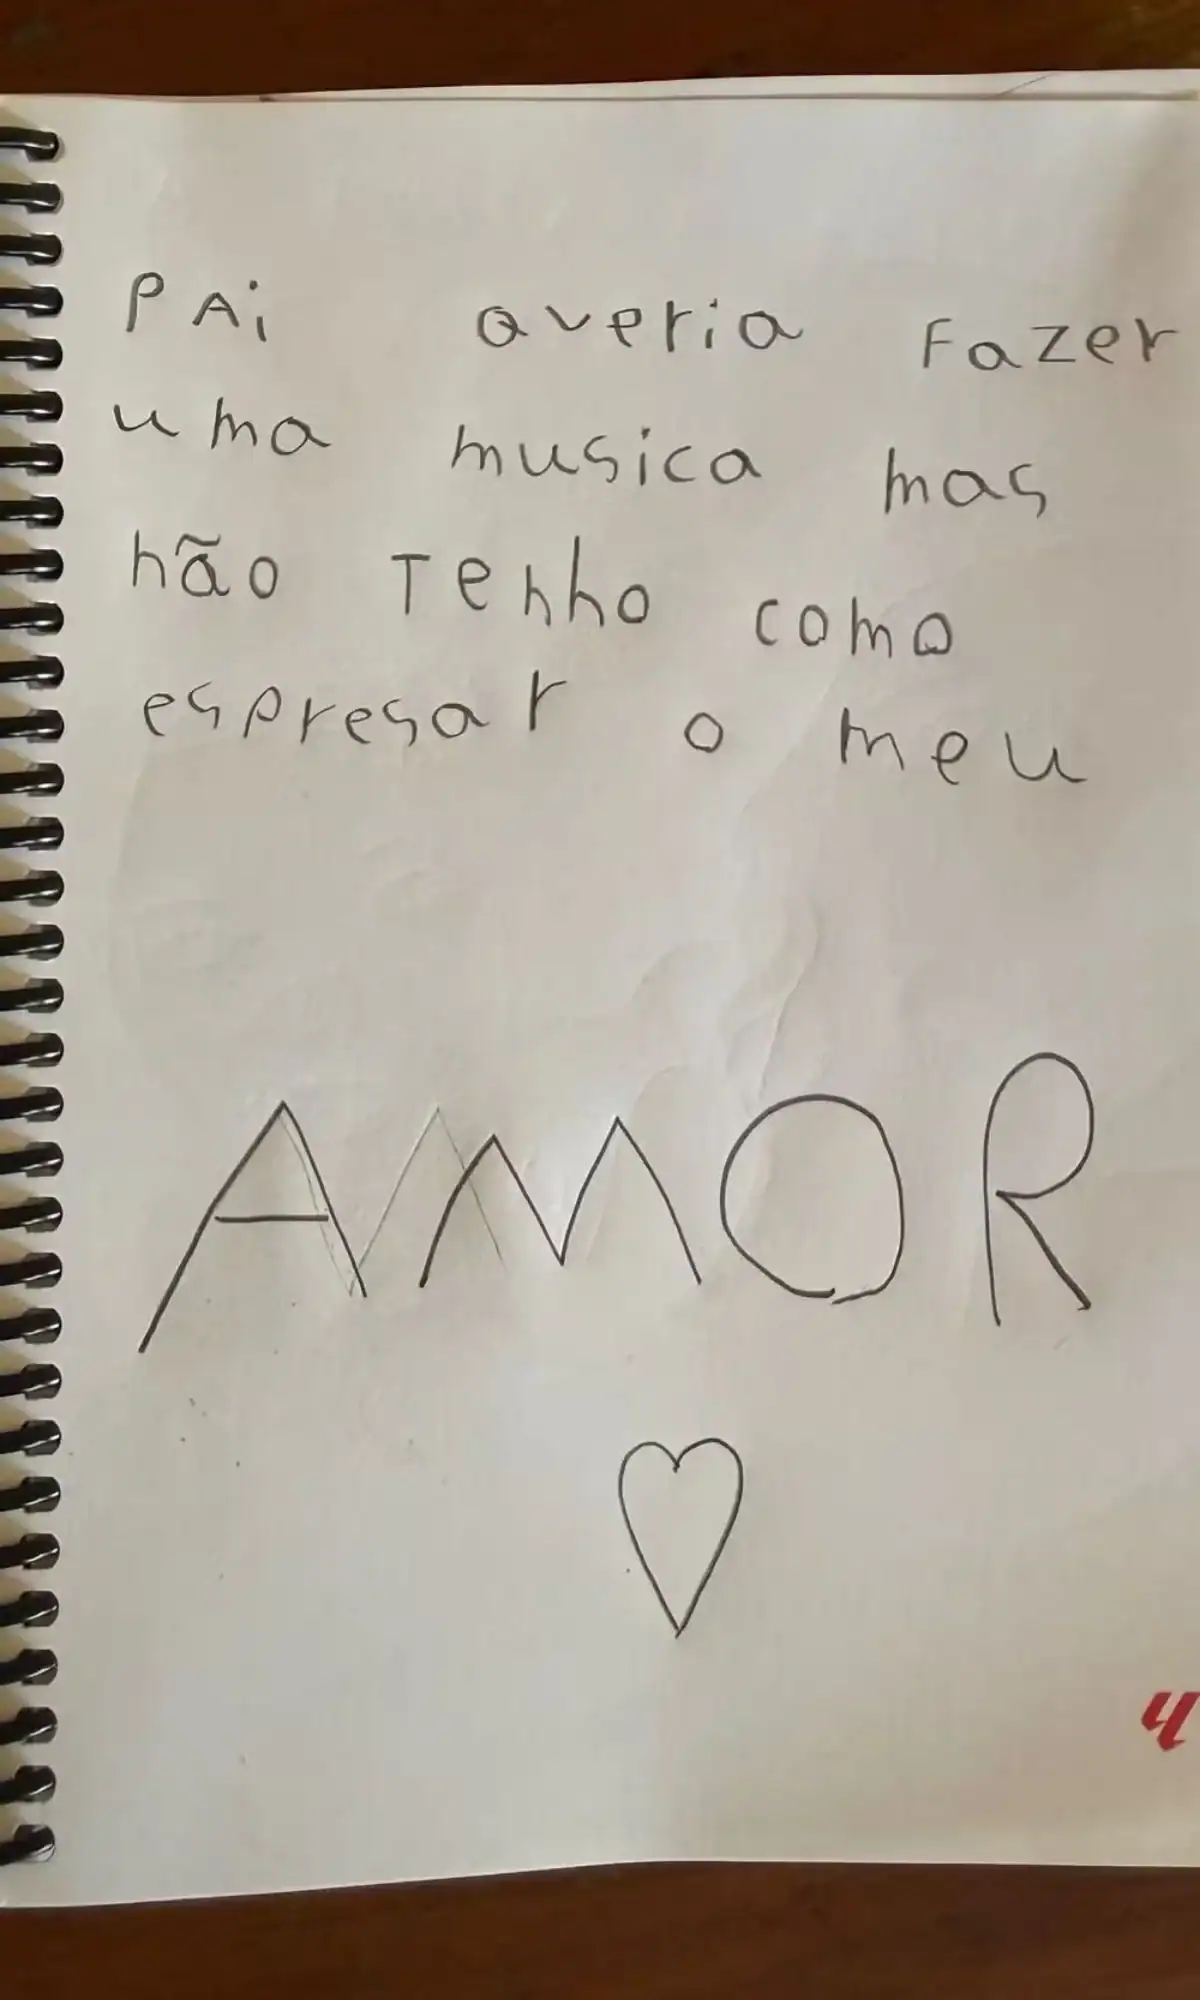 PAi queria Fazer
uma musica mas
não Tenho como
espresar o meu
AMOR